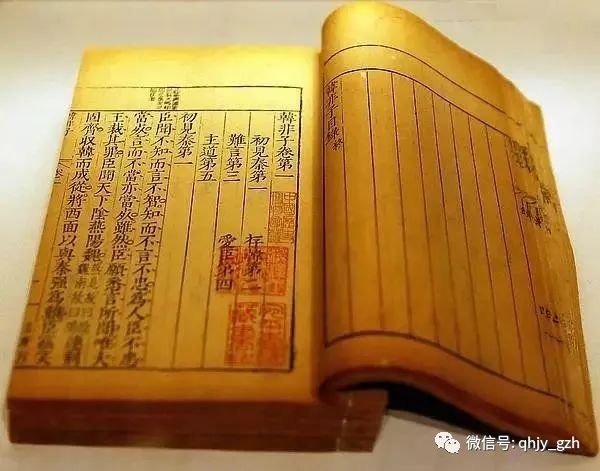 韓非子目錄終
韓非子卷第一
初見秦第一　存韓第二
難言第三　愛臣第四
主道第五
初見秦第一
臣聞不知而言不智知而不言不忠爲人臣不忠
當死言而不當亦當死雖然臣願悉言所聞唯大
王裁其罪臣聞天下陰燕陽魏連荆
固齊收韓而成從將西面以與秦强爲難臣
微信号: qhjy_gzh